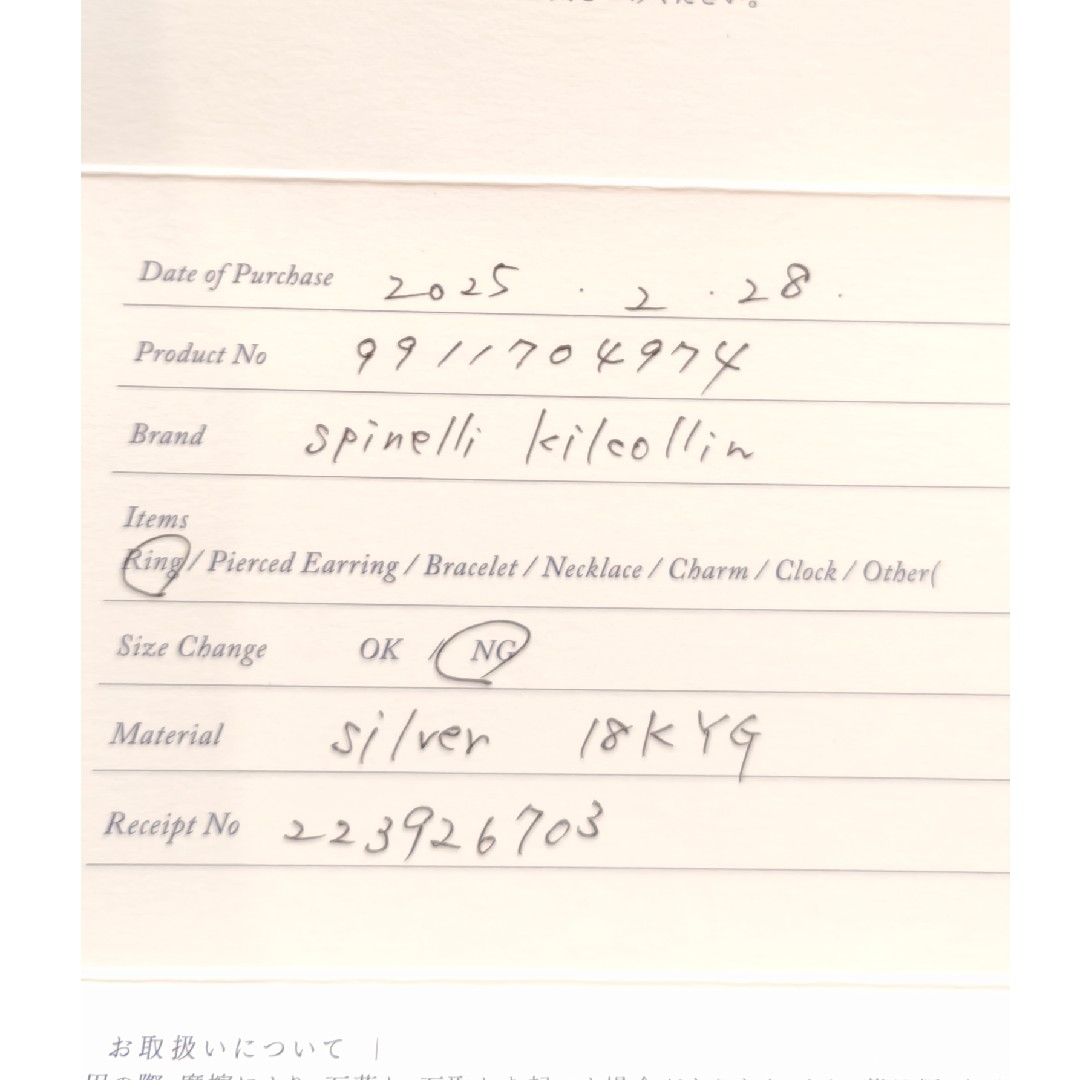 ください。
Date of Purchase 2025 . 2 . 28 .
Product No 9911704974
Brand spinelli kilcollin
Items
Ring / Pierced Earring / Bracelet / Necklace / Charm / Clock / Other(
Size Change OK / NG
Material silver 18KYG
Receipt No 223926703
お取扱いについて |